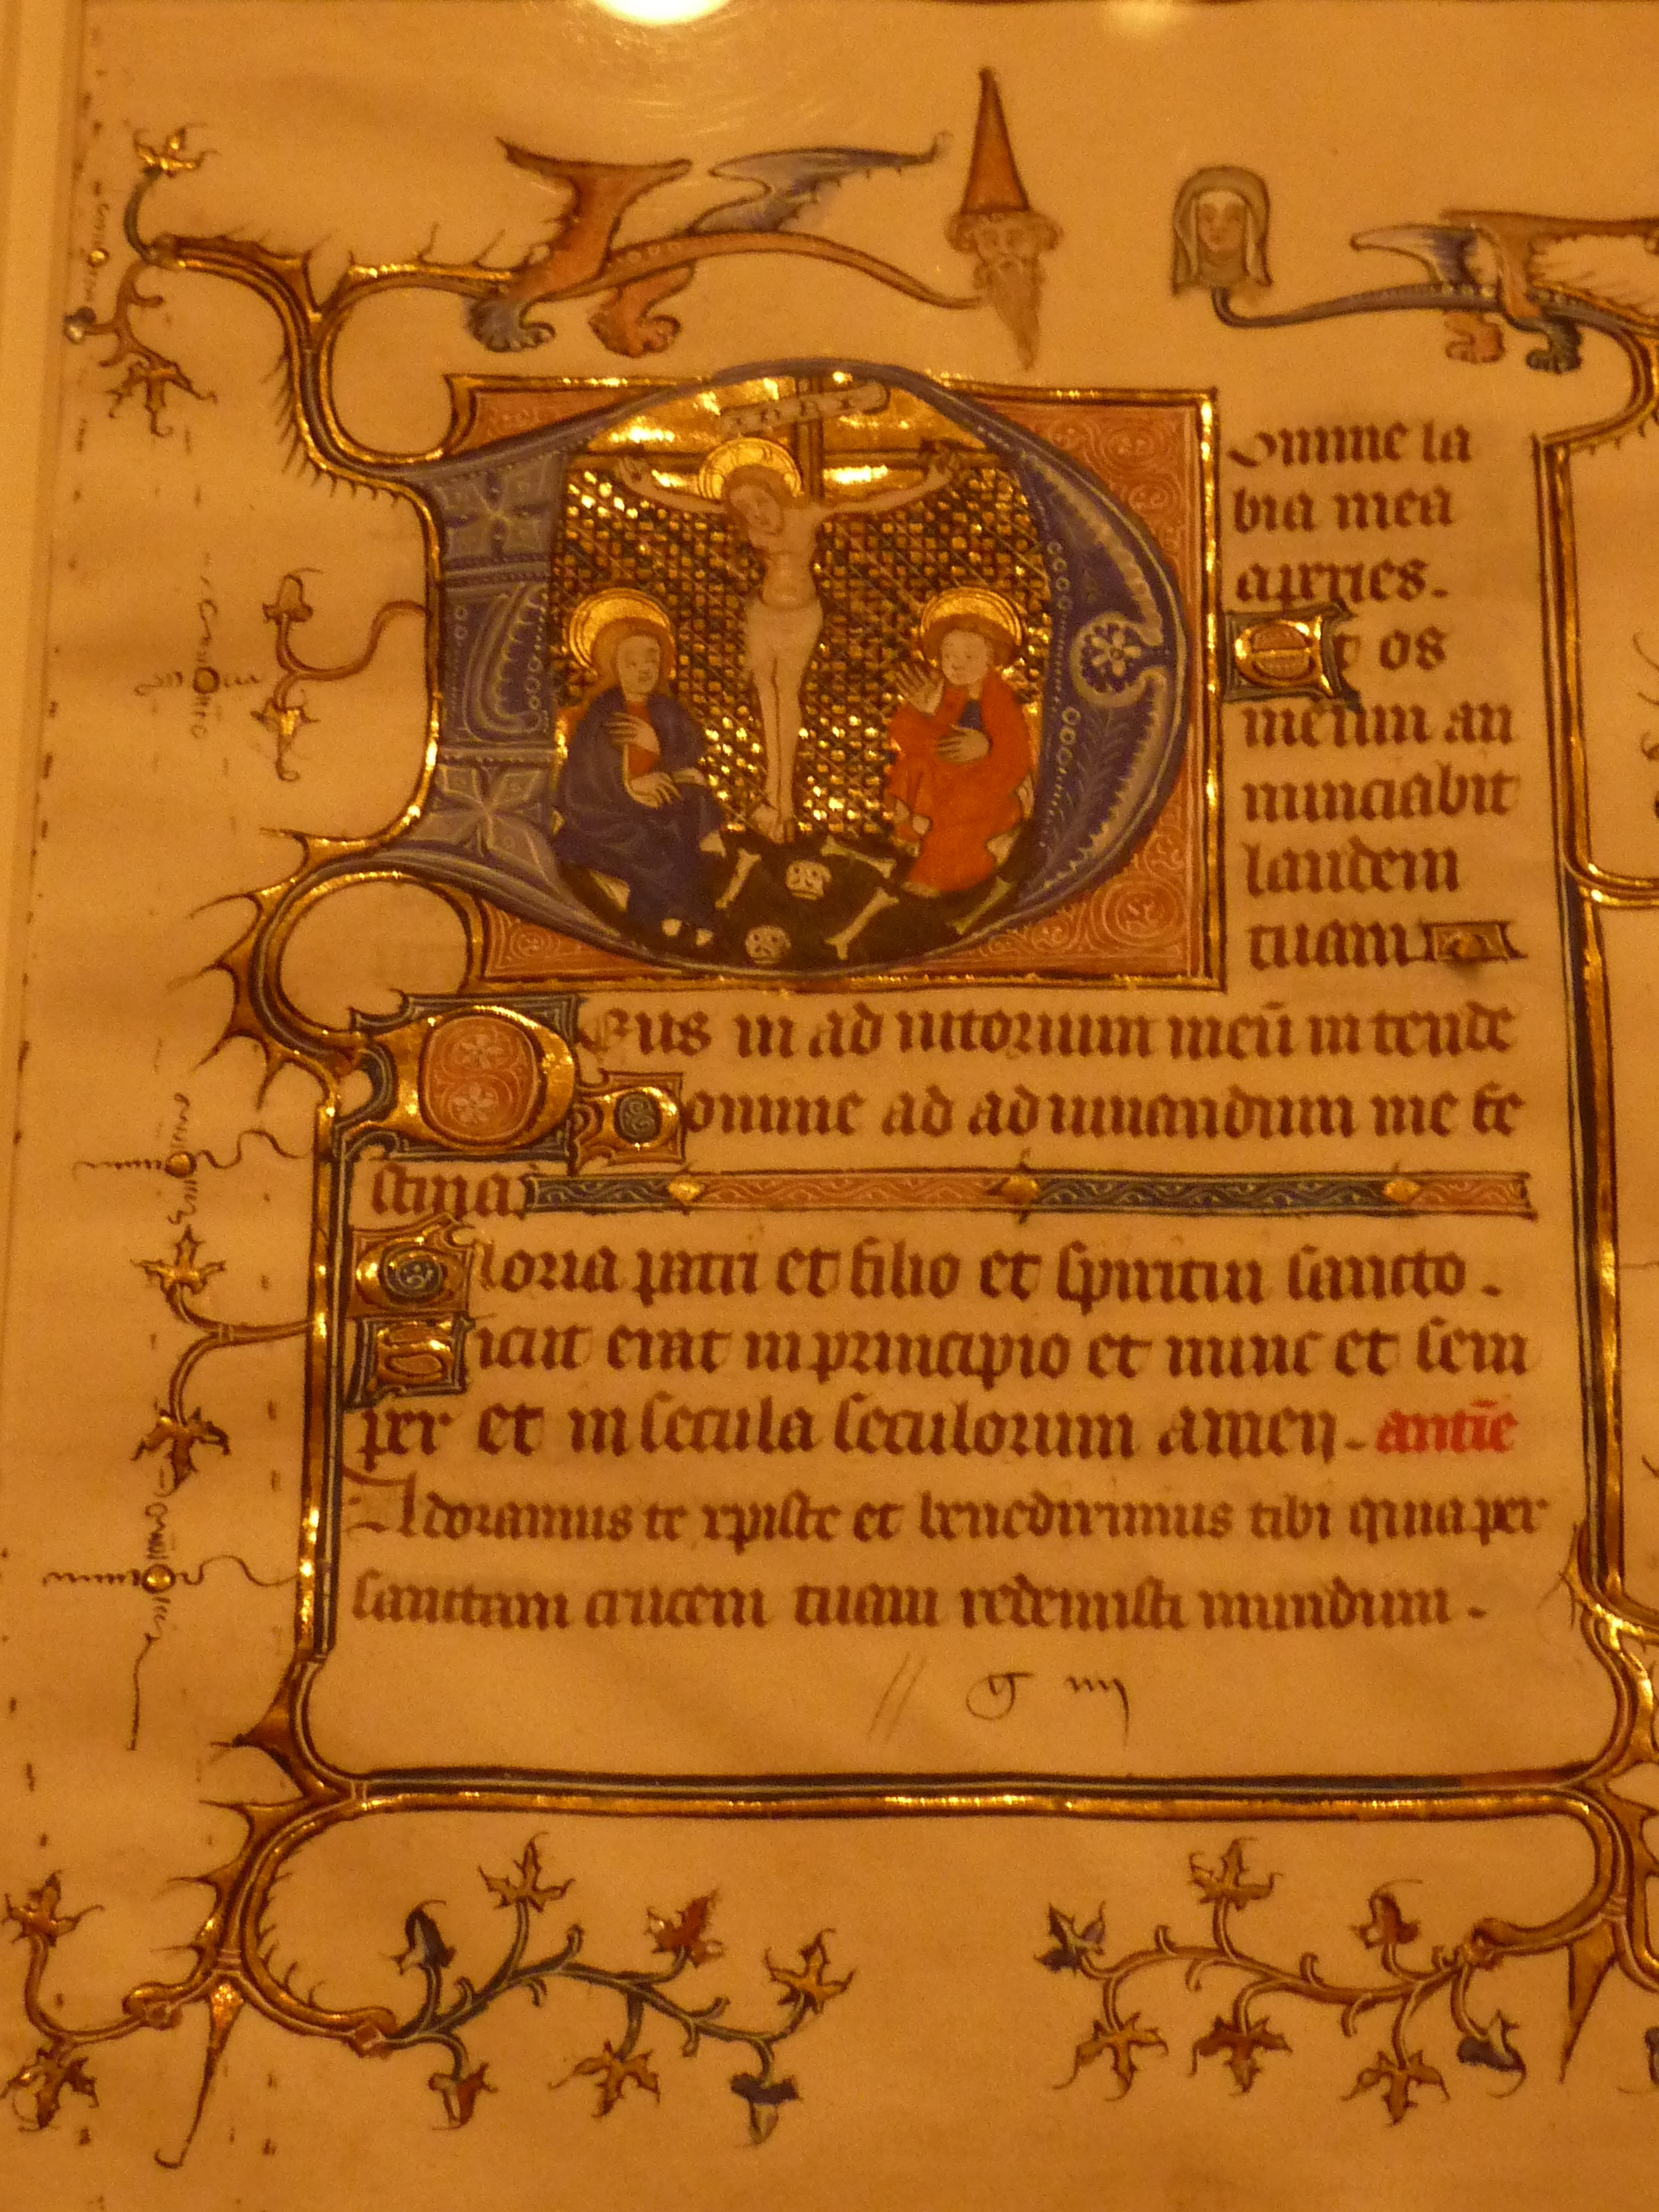 INRI
Domine la
bia mea
aperies.
Et os
meum an
nunciabit
laudem
tuam
Deus in ad iutorium meū in tende
Domine ad ad iuuandum me fe
stina.
Gloria patri et filio et spiritui sancto.
Sicut erat in principio et nunc et sem
per et in secula seculorum amen. antiē
Adoramus te xpiste et benedicimus tibi quia per
sanctam crucem tuam redemisti mundum.